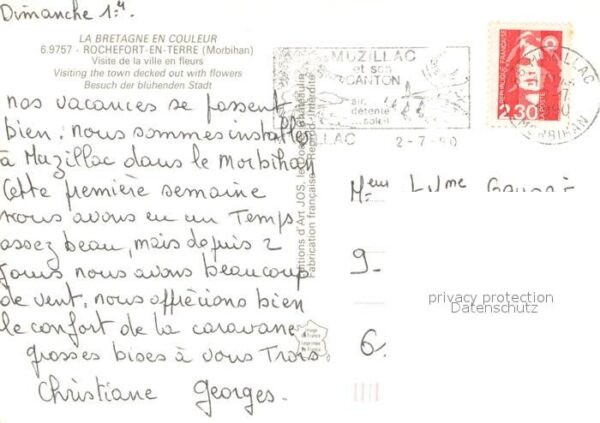 Dimanche 1er
LA BRETAGNE EN COULEUR
6.9757 - ROCHEFORT-EN-TERRE (Morbihan)
Visite de la ville en fleurs
Visiting the town decked out with flowers
Besuch der bluhenden Stadt
nos vacances se passent
bien. Nous sommes installés
à Muzillac dans le Morbihan
Cette première semaine
nous avons eu un Temps
assez beau, mais depuis 2
jours nous avons beaucoup
de vent, nous apprécions bien
le confort de la caravane
grosses bises à vous Trois
Christiane Georges.
Editions d'Art JOS, le
Fabrication française Reprod. Interdite
Image de France
MUZILLAC
et son
CANTON
air
détente
soleil
LAC 2-7-90
RÉPUBLIQUE FRANÇAISE
2,30
MUZILLAC
MORBIHAN
Meur Mme
9-
6.
privacy protection
Datenschutz